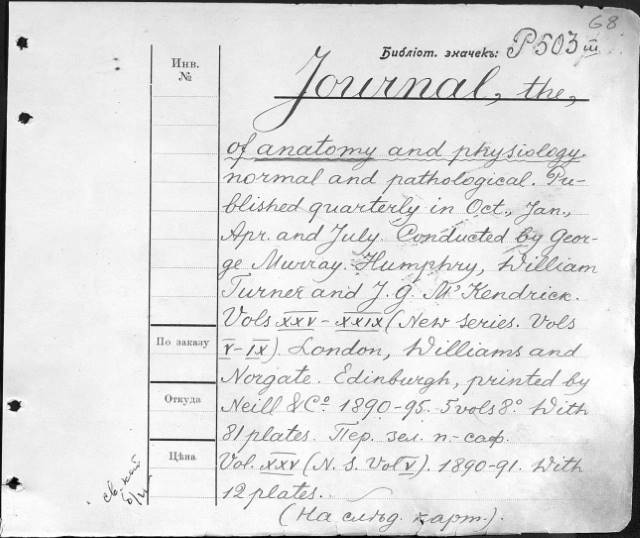 68
Библiот. значекъ: P503 III
Инв.
№
Journal, the,
of anatomy and physiology
normal and pathological. Pu-
blished quarterly in Oct., Jan.,
Apr. and July. Conducted by Geor-
ge Murray Humphry, William
Turner and J. G. M'Kendrick.
Vols XXV-XXIX (New Series. Vols
V-IX). London, Williams and
Norgate. Edinburgh, printed by
Neill & Co. 1890-95. 5 vols 8°. With
81 plates. Пер. зел. п-саф.
Vol. XXV (N. S. Vol V). 1890-91. With
12 plates.
(На слѣд. карт.).
По заказу
Откуда
Цѣна